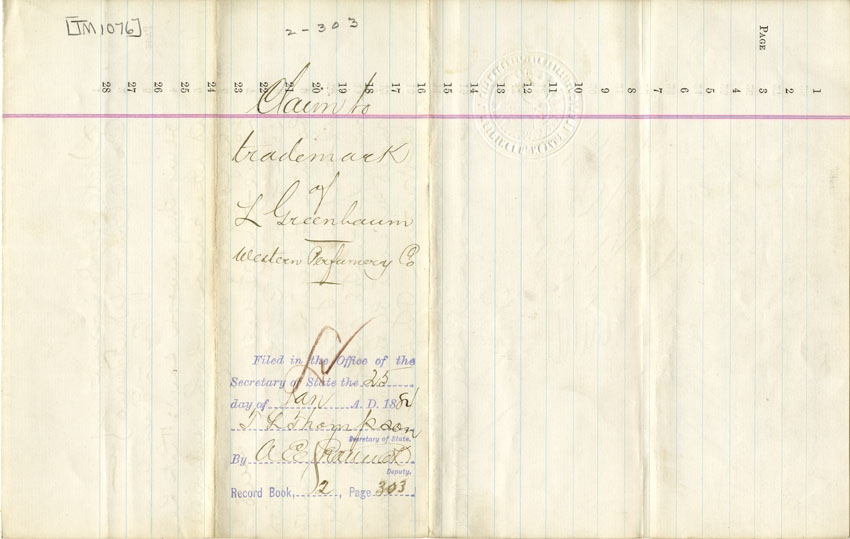 [TM1076]
2-303
PAGE
28 27 26 25 24 23 22 21 20 19 18 17 16 15 14 13 12 11 10 9 8 7 6 5 4 3 2 1
Claim to
trademark
of
L Greenbaum
Western Perfumery Co
Filed in the Office of the
Secretary of State the 25
day of Jan A. D. 188
T L Thompson
Secretary of State.
By A E
Deputy.
Record Book, 2, Page 303